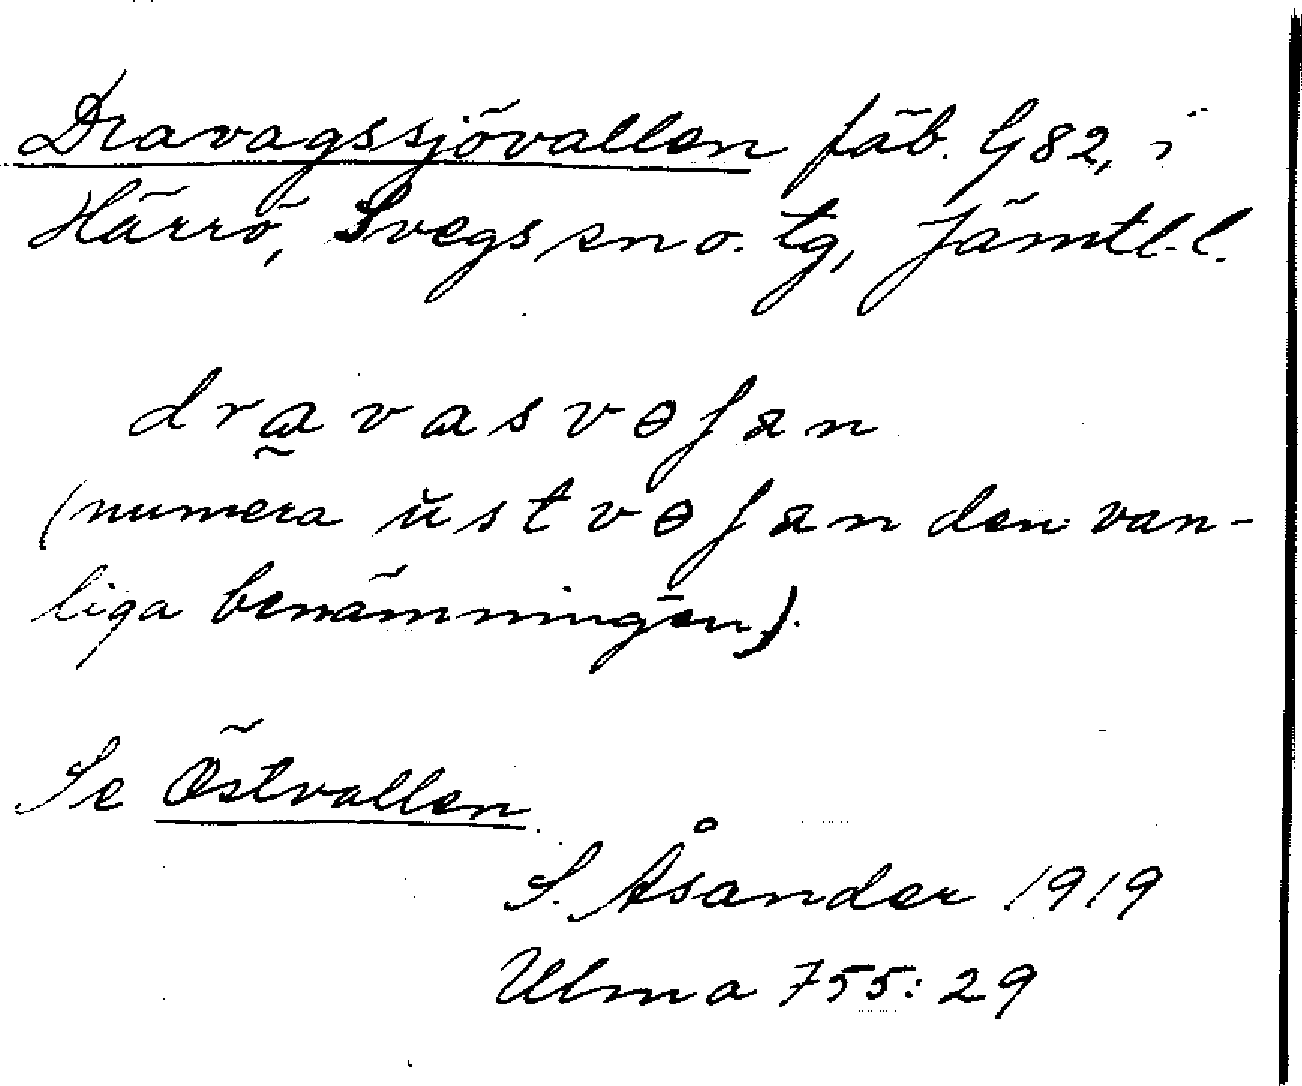 Dravagssjövallen fäb. G82, i
Härrö, Svegs sn o. tg, Jämtl. l.
dravasvɵʃan
(numera ustvɵʃan den van-
liga benämningen).
Se Östvallen.
S. Åsander 1919
Ulma 755:29